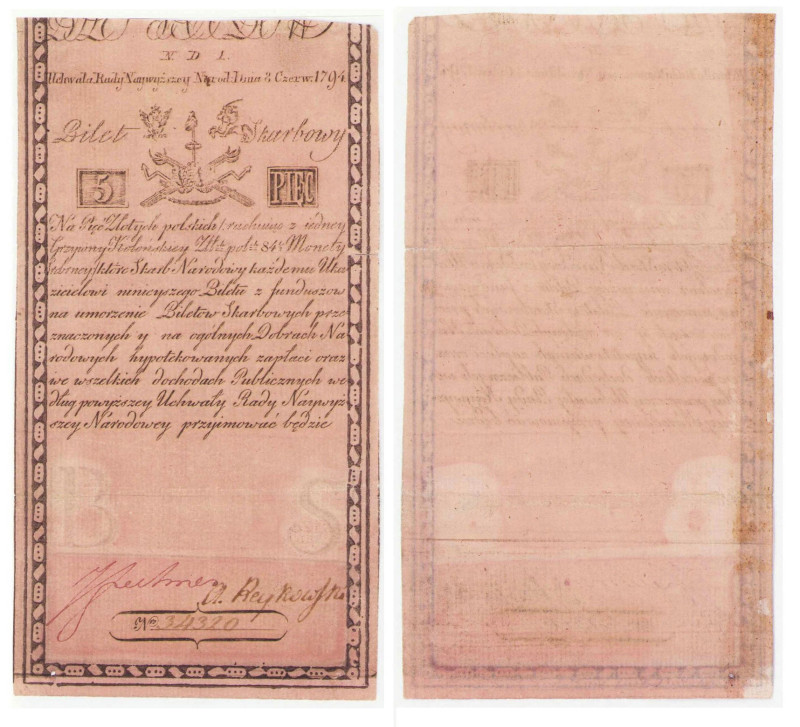 N D 1.
Uchwała Rady Naywyższey Narod: Dnia 8 Czerw: 1794
Bilet Skarbowy
5 PIĘC
Na Pięć Złotych polskich rachuiąc z iedney
Grzywny Kolońskiey Złt: pol: 84½ Monety
srebrney które Skarb Narodowy każdemu Oka
zicielowi ninieyszego Biletu z funduszow
na umorzenie Biletów Skarbowych prze
znaczonych y na ogólnych Dobrach Na
rodowych hypotekowanych zapłaci oraz
we wszelkich dochodach Publicznych we
dług powyższey Uchwały Rady Naywyż
szey Narodowey przyimować będzie
B S
A. Reykowski
No. 34320